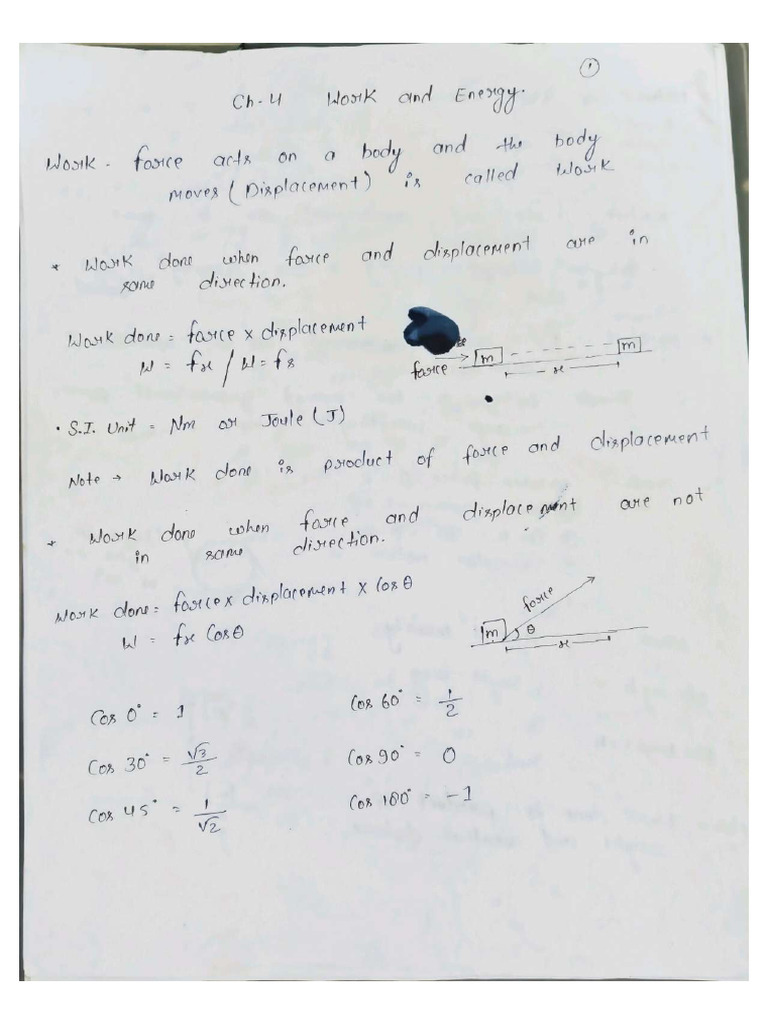 1
Ch-4 Work and Energy.
Work - force acts on a body and the body
moves (Displacement) is called Work
* Work done when force and displacement are in
same direction.
Work done = force x displacement
W = fx / W = fs
force m m
x
• S.I. Unit = Nm or Joule (J)
Note → Work done is product of force and displacement
* Work done when force and displacement are not
in same direction.
Work done = force x displacement x Cosθ
W = fx Cosθ
force
m θ
x
Cos 0° = 1 Cos 60° = 1/2
Cos 30° = √3/2 Cos 90° = 0
Cos 45° = 1/√2 Cos 180° = -1